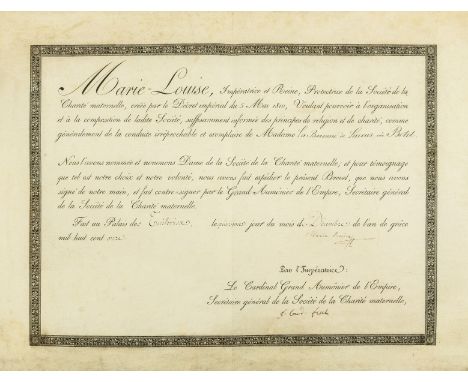 Marie-Louise, Impératrice et Reine, Protectrice de la Société de la
Charité maternelle, créée par le Décret impérial du 5 Mai 1810, Voulant pourvoir à l'organisation
et à la composition de ladite Société, suffisamment informée des principes de religion et de charité, comme
généralement de la conduite irréprochable et exemplaire de Madame la Baronne de
Nous l'avons nommée et nommons Dame de la Société de la Charité maternelle; et pour témoignage
que tel est notre choix et notre volonté, nous avons fait expédier le présent Brevet, que nous avons
signé de notre main, et fait contre-signer par le Grand Aumônier de l'Empire, Secrétaire général
de la Société de la Charité maternelle.
Fait au Palais des Tuileries, le jour du mois de Décembre de l'an de grâce
mil huit cent onze
Par l'Impératrice:
Le Cardinal Grand Aumônier de l'Empire,
Secrétaire général de la Société de la Charité maternelle,